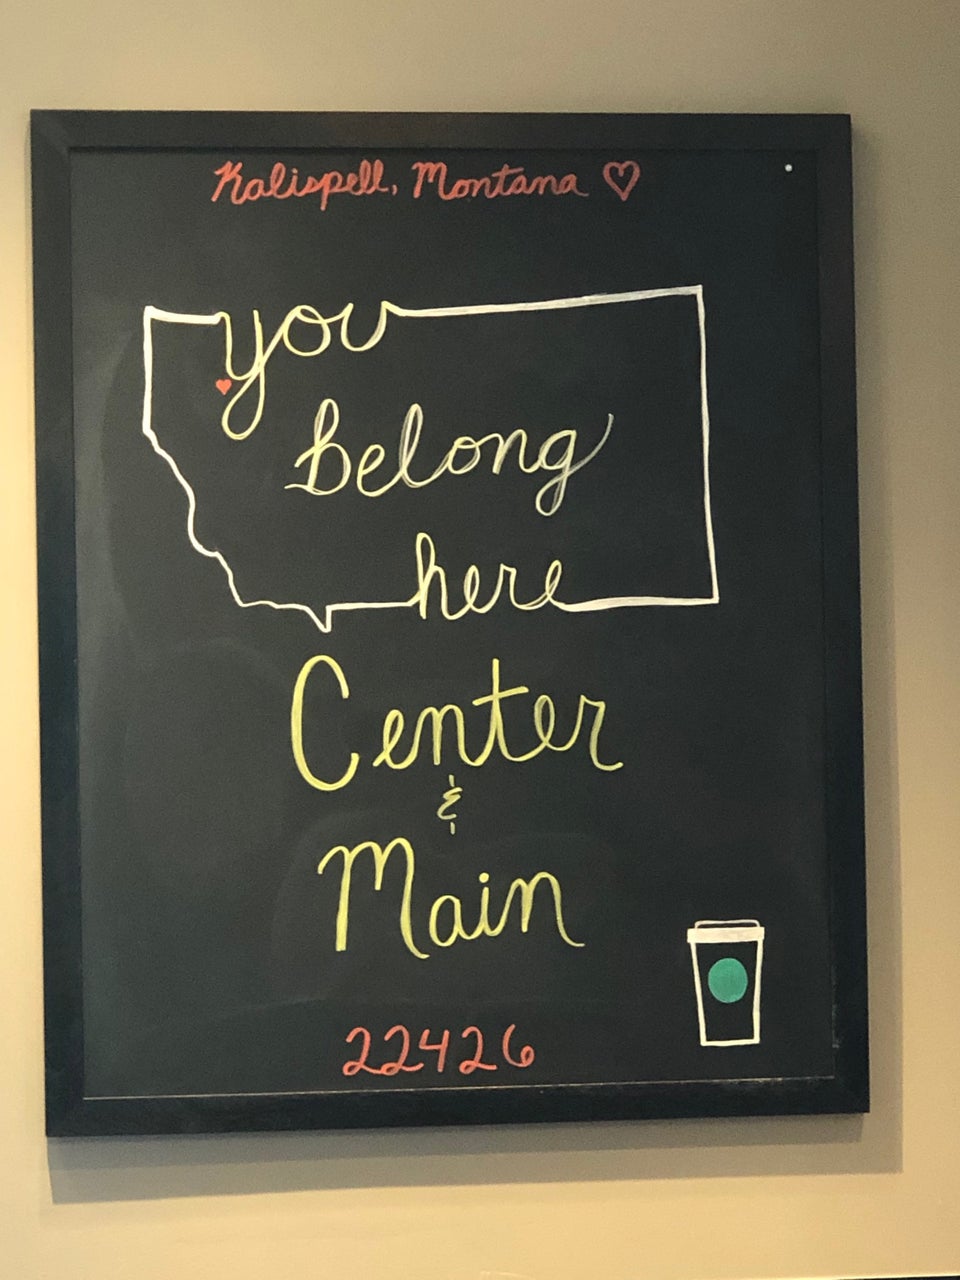 Kalispell, Montana ♡
you
belong
here
Center
&
Main
22426